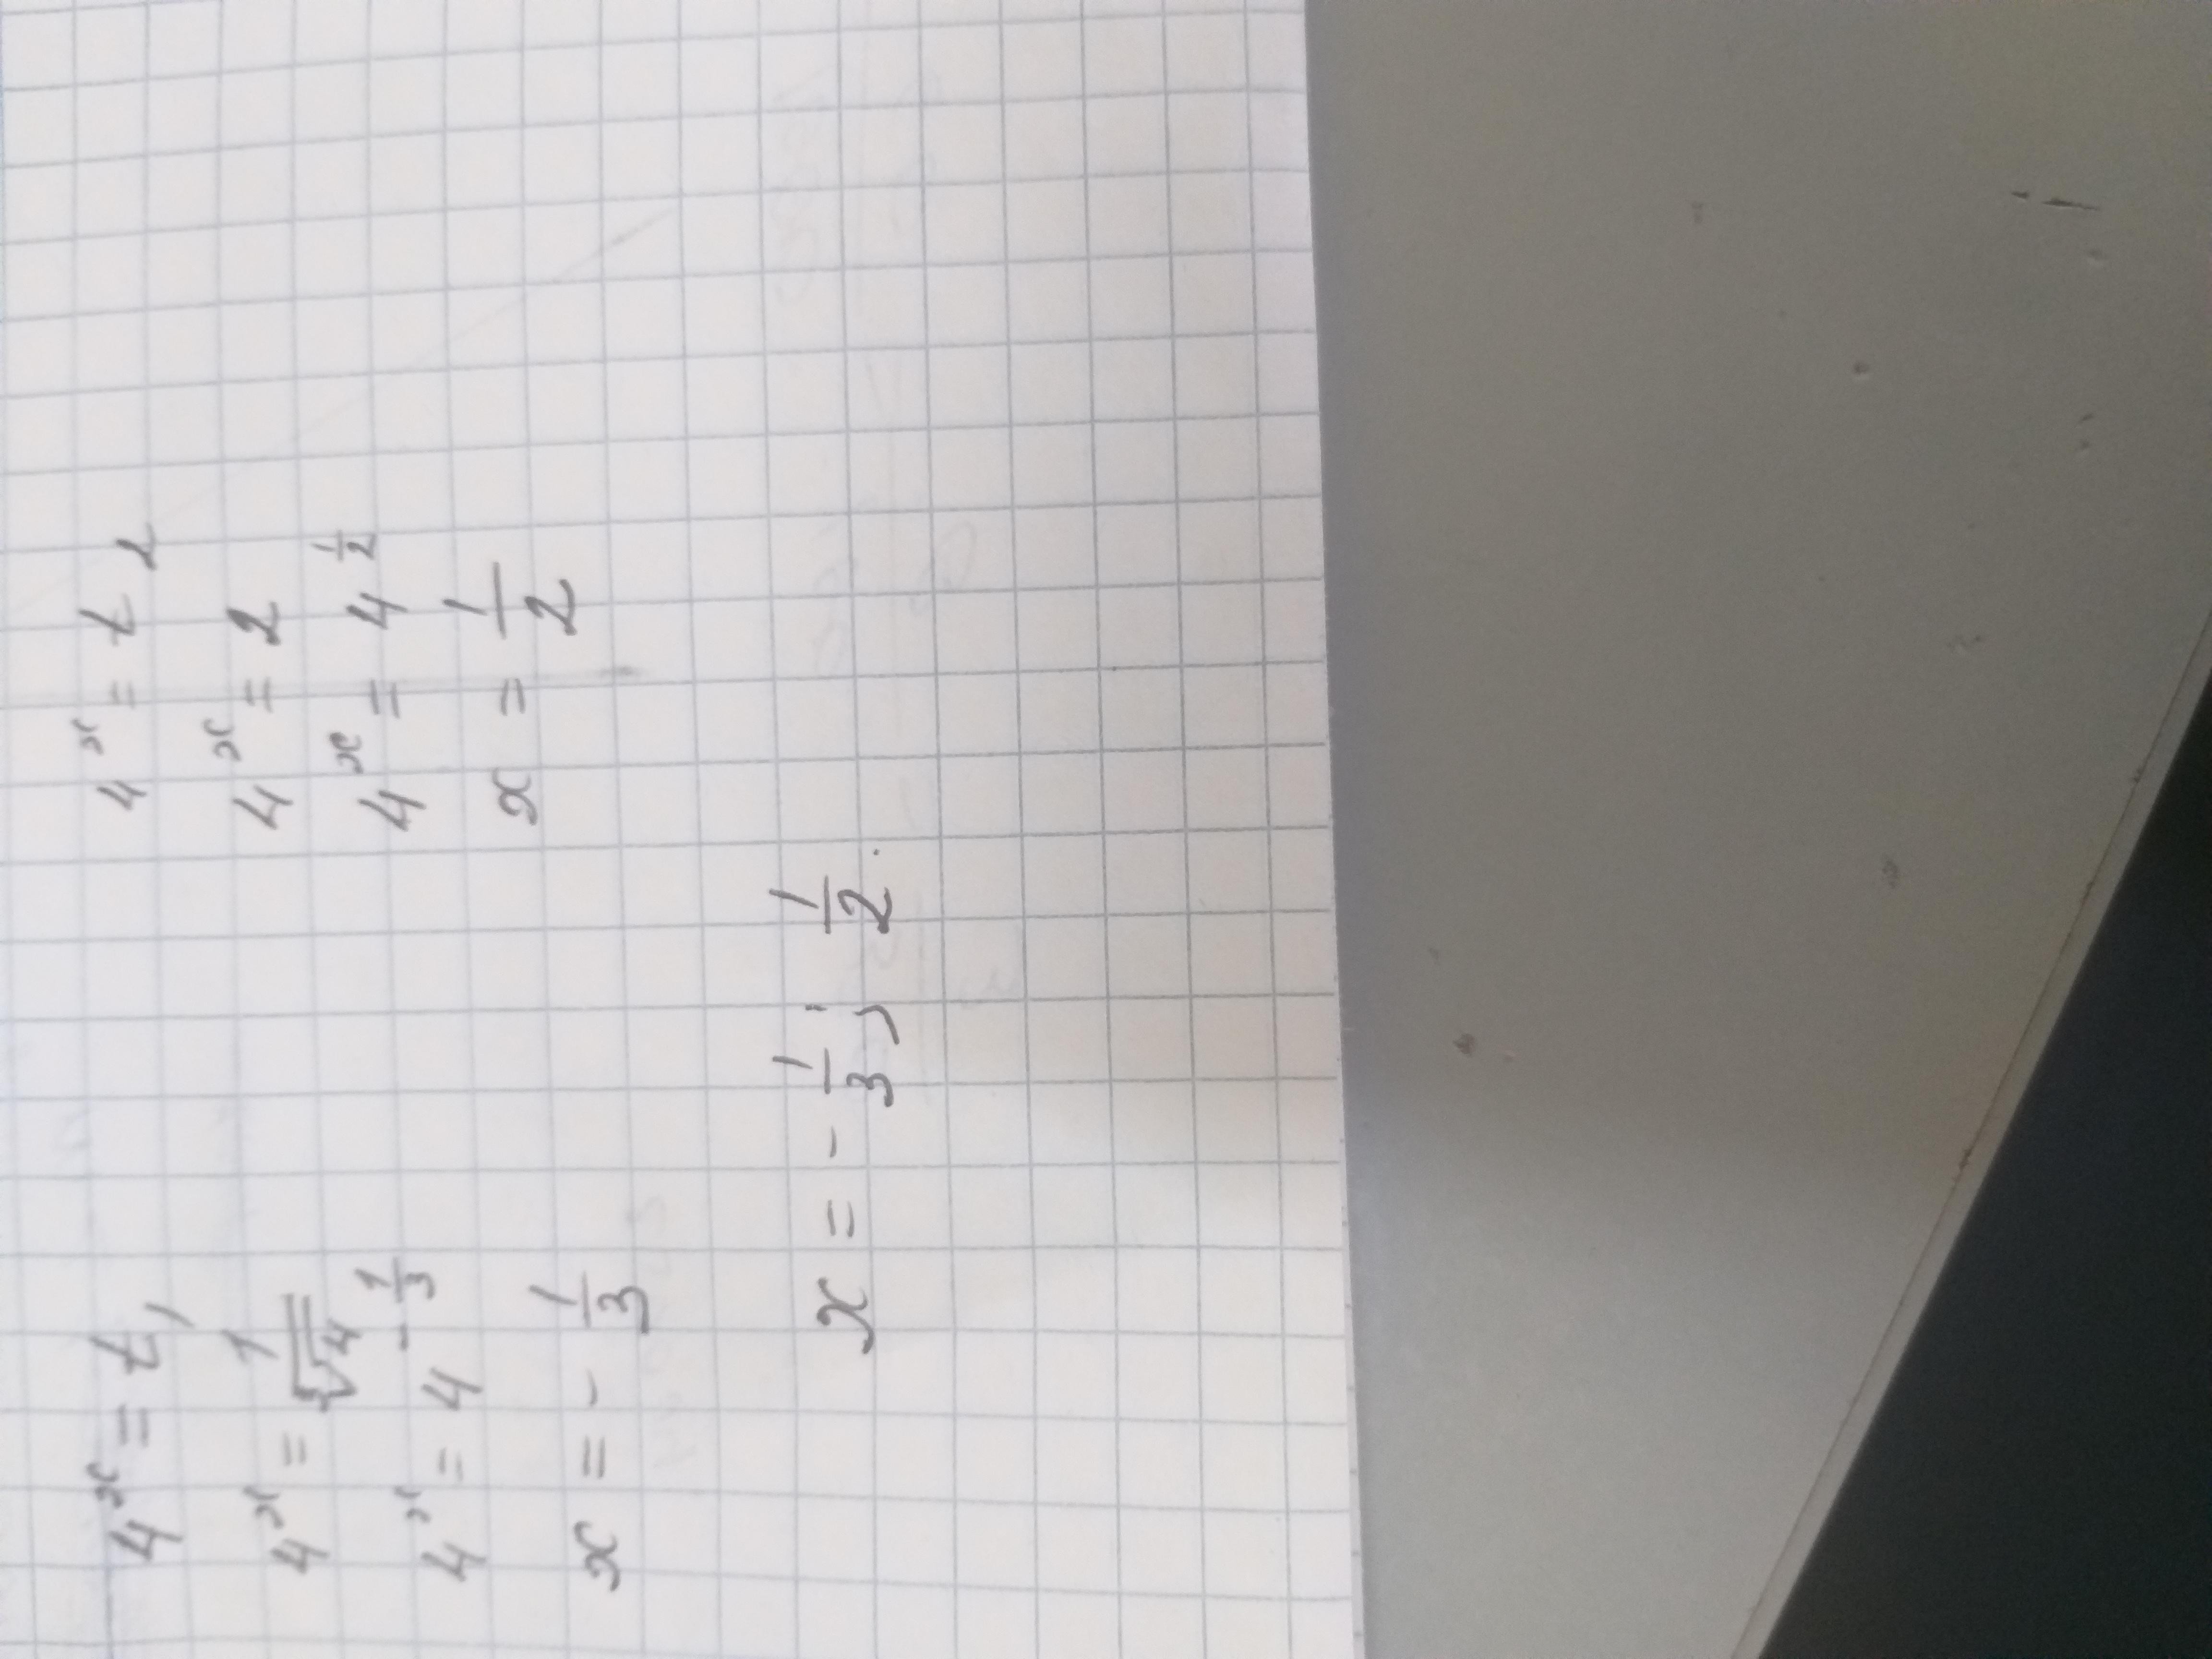 4ˣ = t₁
4ˣ = 1/∛4
4ˣ = 4^(-1/3)
x = - 1/3
4ˣ = t₂
4ˣ = 2
4ˣ = 4^(1/2)
x = 1/2
x = - 1/3 ; 1/2.